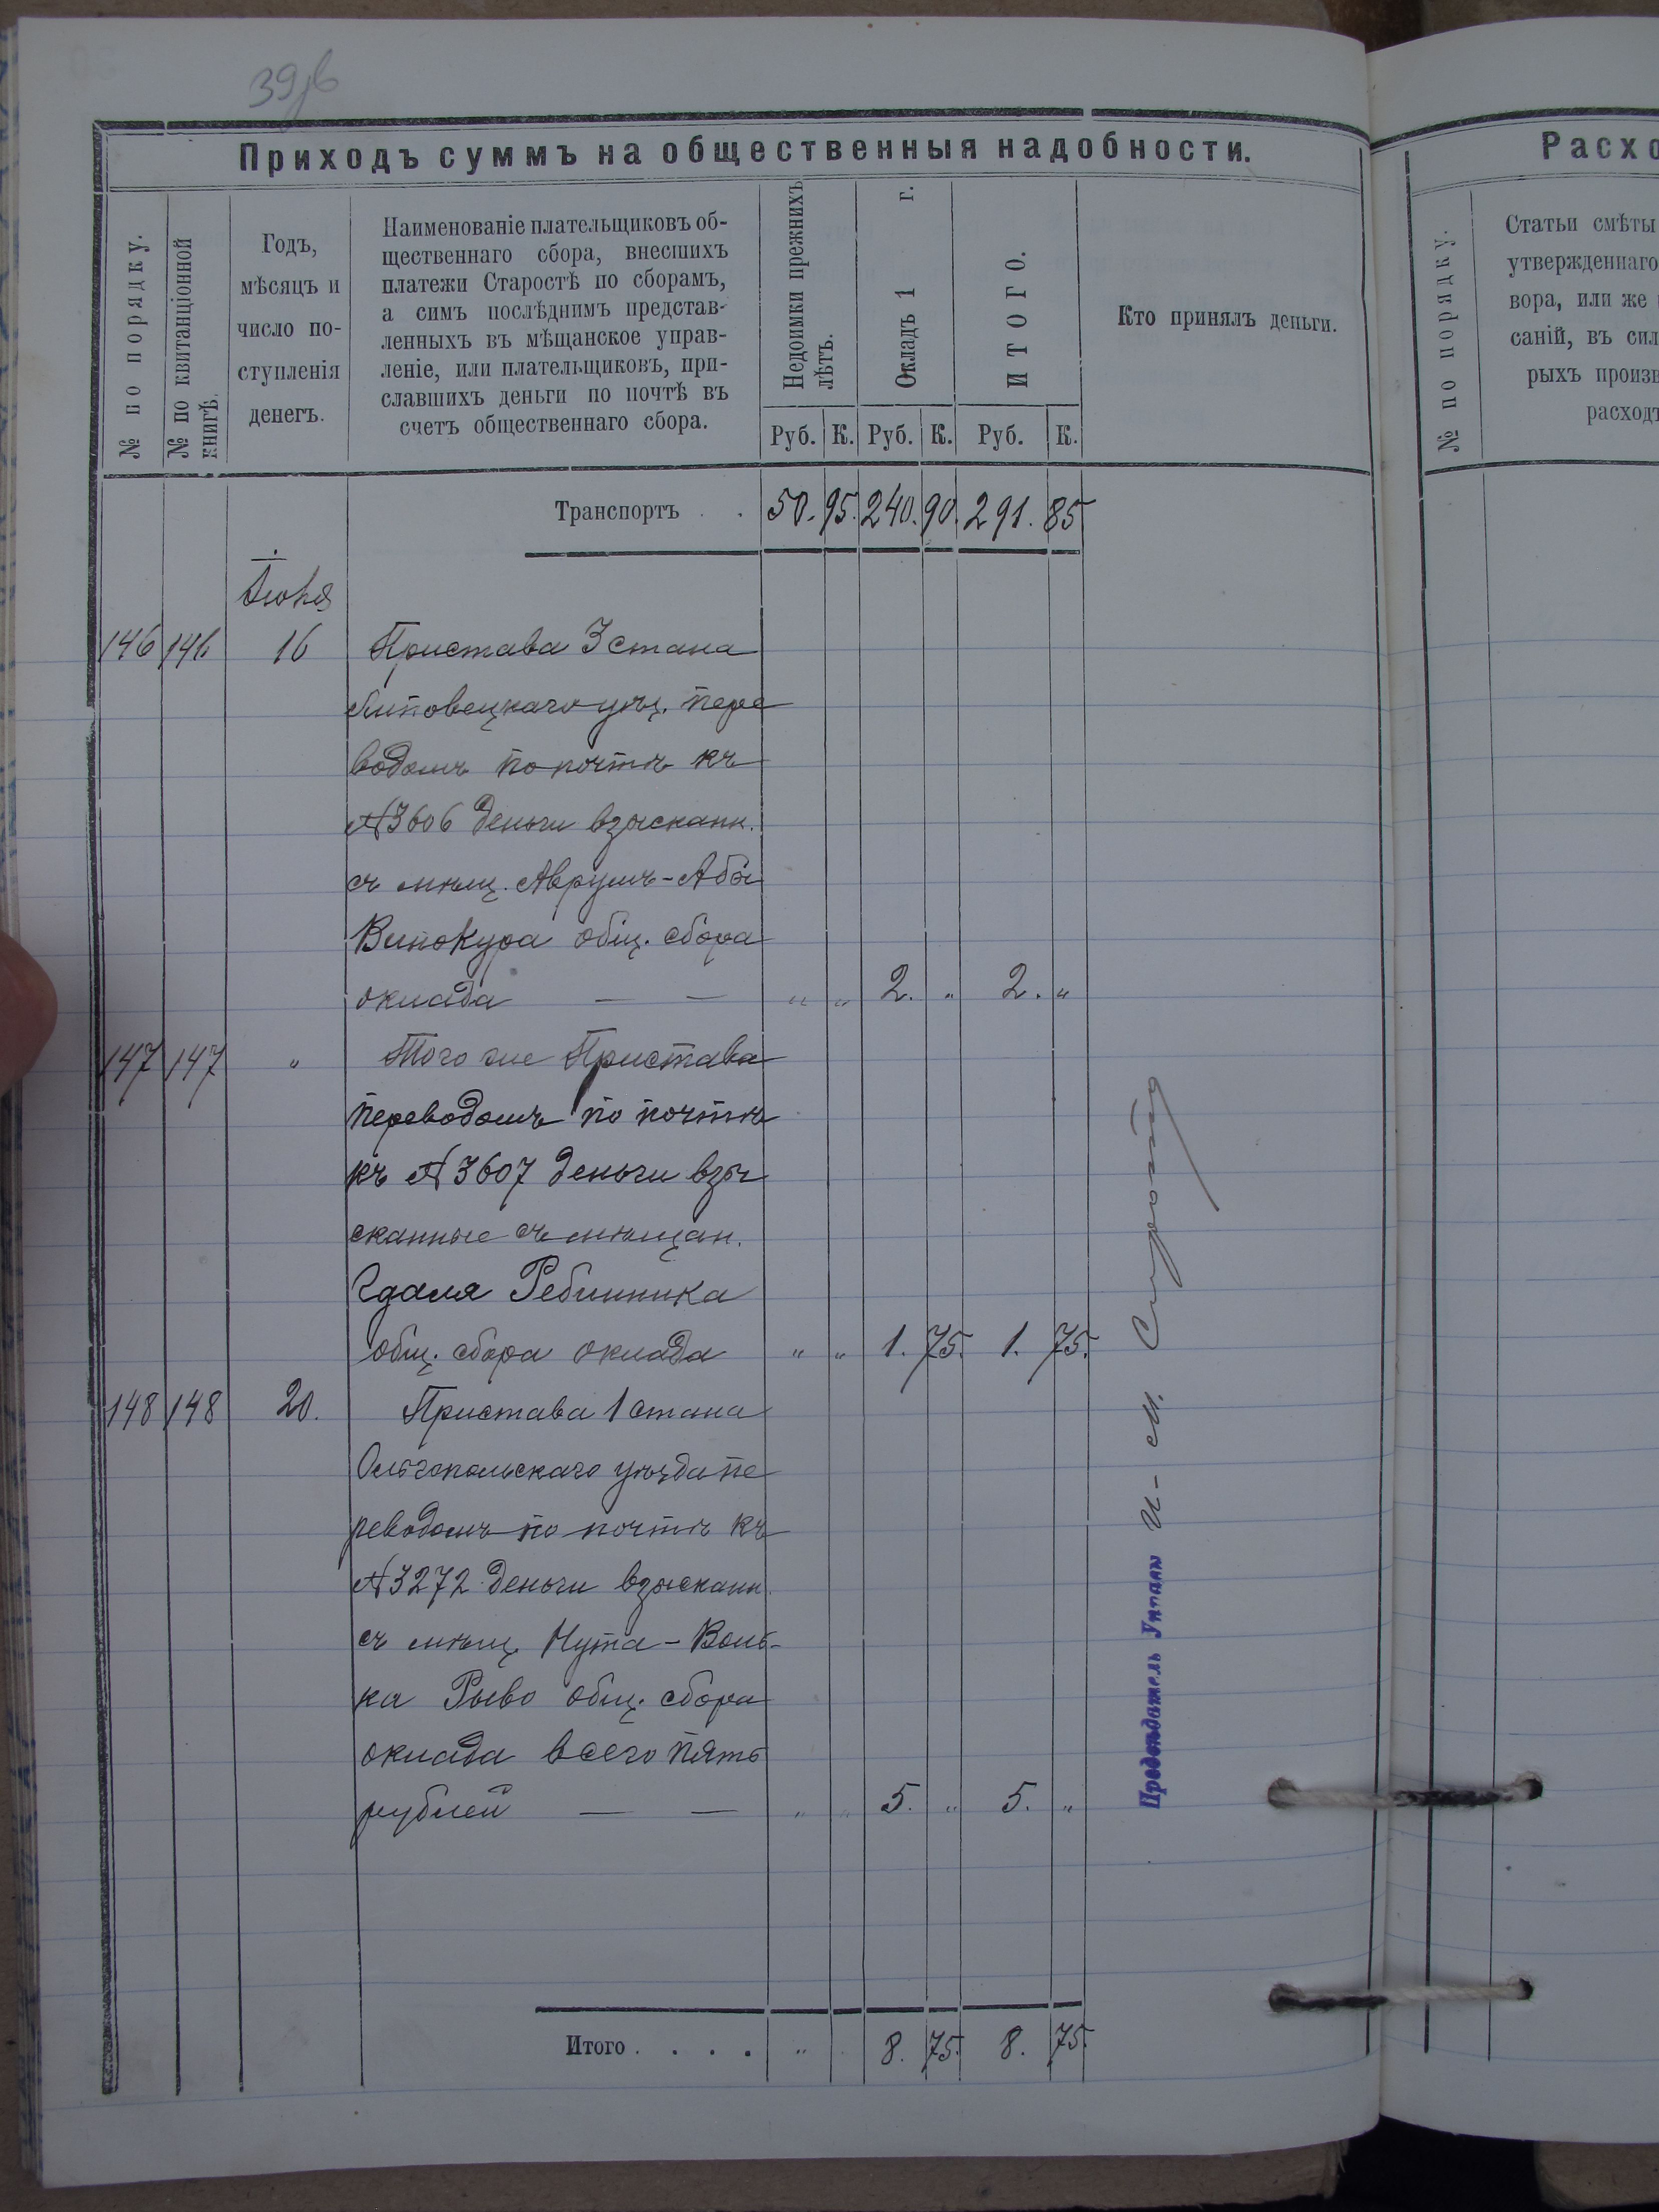 39об
Приходъ суммъ на общественныя надобности.
№ по порядку.
№ по квитанціонной
книгѣ.
Годъ,
мѣсяцъ и
число по-
ступленія
денегъ.
Наименованіе плательщиковъ об-
щественнаго сбора, внесшихъ
платежи Старостѣ по сборамъ,
а симъ послѣднимъ представ-
ленныхъ въ мѣщанское управ-
леніе, или плательщиковъ, при-
славшихъ деньги по почтѣ въ
счетъ общественнаго сбора.
Недоимки прежнихъ
лѣтъ.
Окладъ 1 г.
ИТОГО.
Кто принялъ деньги.
Руб. К. Руб. К. Руб. К.
Транспортъ . . 50. 95. 240. 90. 291. 85
146 146 16 Пристава 3 стана
Липовецкаго уѣз. пере
водомъ по почтѣ къ
№3606 деньги взысканн.
съ мѣщ. Аврумъ-Абы
Винокура общ. сбора
оклада — — „ „ 2. „ 2. „
147 147 „ Того же Пристава
переводомъ по почтѣ
къ №3607 деньги взы
сканные съ мѣщан.
Гдаля Ребинника
общ. сбора оклада „ „ 1. 75. 1. 75.
148 148 20. Пристава 1 стана
Ольгопольскаго уѣзда пе
реводомъ по почтѣ къ
№3272 деньги взысканн.
съ мѣщ. Нута-Воль-
ка Рыво общ. сбора
оклада всего пять
рублей — — „ „ 5. „ 5. „
Предсѣдатель Управы И-М.
Итого . . . . „ 8. 75. 8. 75.
Расхо
№ по порядку.
Статьи смѣты
утвержденнаго
вора, или же
саній, въ сил
рыхъ произв
расходъ